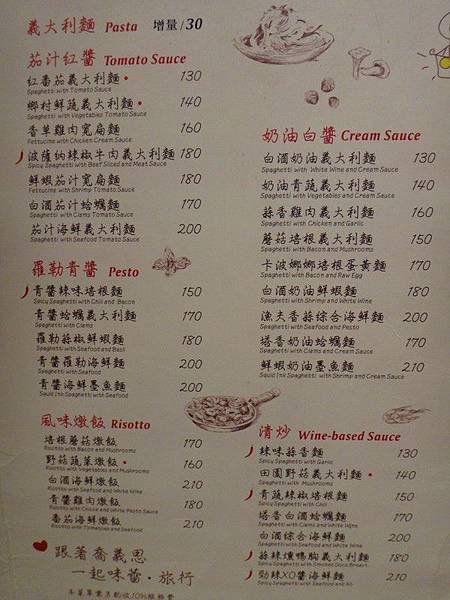 義大利麵 Pasta 增量/30
茄汁紅醬 Tomato Sauce
紅番茄義大利麵 • 130
Spaghetti with Tomato Sauce
鄉村鮮蔬義大利麵 • 140
Spaghetti with Vegetables Tomato Sauce
香草雞肉寬扁麵 160
Fettucine with Chicken Cream Sauce
波薩納辣椒牛肉義大利麵 180
Spicy Spaghetti with Beef Sliced and Meat Sauce
鮮蝦茄汁寬扁麵 180
Fettucine with Shrimp Tomato Sauce
白酒茄汁蛤蠣麵 170
Spaghetti with Clams Tomato Sauce
茄汁海鮮義大利麵 200
Spaghetti with Seafood Tomato Sauce
羅勒青醬 Pesto
青醬辣味培根麵 150
Spicy Spaghetti with Chili and Bacon
青醬蛤蠣義大利麵 170
Spaghetti with Clams
羅勒蒜椒鮮蝦麵 180
Spaghetti with Seafood and Basil
青醬羅勒海鮮麵 200
Spaghetti with Seafood
青醬海鮮墨魚麵 200
Squid Ink Spaghetti with Seafood
風味燉飯 Risotto
培根蘑菇燉飯 170
Risotto with Bacon and Mushrooms
野菇蔬菜燉飯 • 160
Risotto with Vegetables and Mushrooms
白酒海鮮燉飯 210
Risotto with Seafood and White Wine
青醬雞肉燉飯 180
Risotto with Chicken and White Pesto Sauce
番茄海鮮燉飯 210
Risotto with Tomatoes and Seafood
跟著喬義思
一起味醬·旅行
奶油白醬 Cream Sauce
白酒奶油義大利麵 130
Spaghetti with White Wine and Cream Sauce
奶油青蔬義大利麵 140
Spaghetti with Vegetables and Cream Sauce
蒜香雞肉義大利麵 160
Spaghetti with Chicken and Garlic
蘑菇培根義大利麵 150
Spaghetti with Bacon and Mushrooms
卡波娜娜培根蛋黃麵 170
Spaghetti with Bacon and Raw Egg
白酒奶油鮮蝦麵 180
Spaghetti with Shrimp and White Wine
漁夫香蒜綜合海鮮麵 200
Spaghetti with Seafood and Pesto
塔香奶油蛤蠣麵 170
Spaghetti with Clams and Cream Sauce
鮮蝦奶油墨魚麵 210
Squid Ink Spaghetti with Shrimp and Cream Sauce
清炒 Wine-based Sauce
辣味蒜香麵 130
Spicy Spaghetti with Garlic
田園野菇義大利麵 • 140
Spaghetti with Mushrooms
青蔬辣椒培根麵 150
Spicy Spaghetti with Chili
塔香白酒蛤蠣麵 170
Spaghetti with Clams and White Wine
白酒綜合海鮮麵 200
Spaghetti with Seafood and White Wine
蒜辣燻鴨胸義大利麵 180
Spicy Spaghetti with Smoked Duck Breast
勁辣XO醬海鮮麵 210